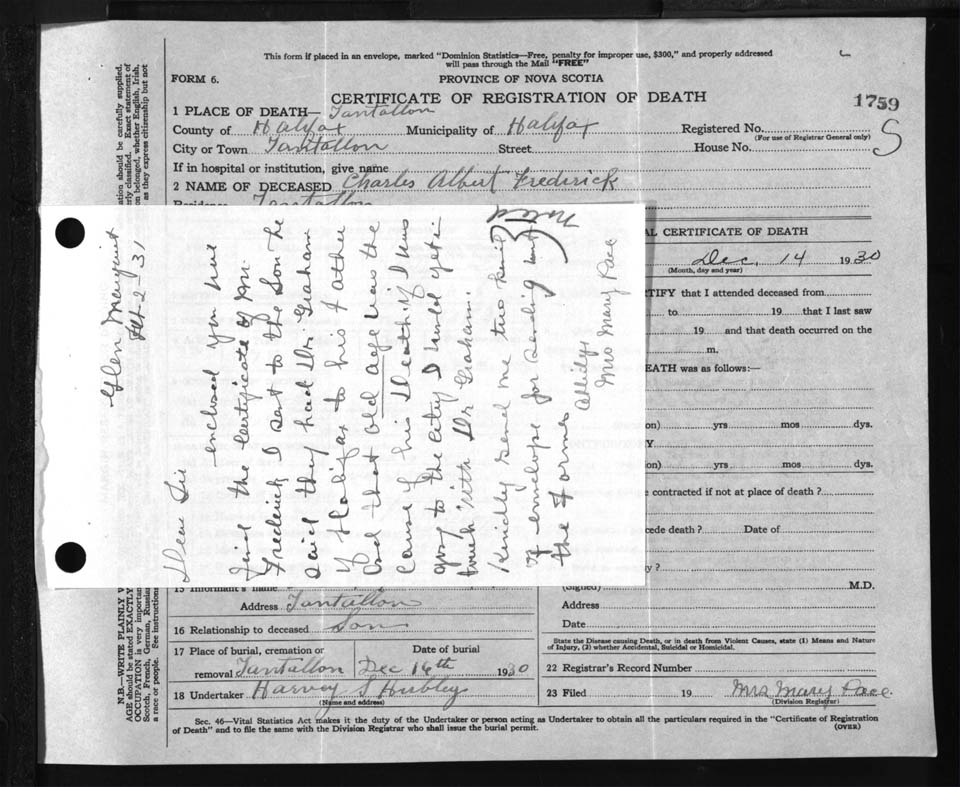 This form if placed in an envelope, marked "Dominion Statistics—Free, penalty for improper use, $300," and properly addressed
will pass through the Mail "FREE"
FORM 6.
PROVINCE OF NOVA SCOTIA
CERTIFICATE OF REGISTRATION OF DEATH
1759
S
1 PLACE OF DEATH— Tantallon
County of Halifax Municipality of Halifax Registered No.
(For use of Registrar General only)
City or Town Tantallon Street House No.
If in hospital or institution, give name
2 NAME OF DECEASED Charles Albert Frederick
Residence Tantallon
AL CERTIFICATE OF DEATH
Dec. 14 1930
(Month, day and year)
TIFY that I attended deceased from
to 19 that I last saw
19 and that death occurred on the
m.
EATH was as follows:—
on) yrs mos dys.
Y
on) yrs mos dys.
e contracted if not at place of death ?
cede death ? Date of
y ?
(Signed) M.D.
Address
Date
State the Disease causing Death, or in death from Violent Causes, state (1) Means and Nature
of Injury, (2) whether Accidental, Suicidal or Homicidal.
22 Registrar's Record Number
23 Filed 19 Mrs Mary Pace
(Division Registrar)
Glen Margaret
Feb-2-31
Dear Sir
enclosed you will
find the Certificate of Mr.
Frederick I sent to the Son he
said they had Dr. Graham
of Halifax to his father
and that old age was the
Cause of his Death if I was
going to the City I would get in
touch with Dr Graham.
Kindly send me two small
envelope for sending
the Forms
Mrs Mary Pace
15 Informant's name
Address Tantallon
16 Relationship to deceased Son
17 Place of burial, cremation or Date of burial
removal Tantallon Dec 16th 1930
18 Undertaker Harvey S Hubley
(Name and address)
Sec. 46—Vital Statistics Act makes it the duty of the Undertaker or person acting as Undertaker to obtain all the particulars required in the "Certificate of Registration
of Death" and to file the same with the Division Registrar who shall issue the burial permit.
(OVER)
N.B.—WRITE PLAINLY
AGE should be stated EXACTLY
OCCUPATION is very important
Scotch, French, German, Russian
a race or people. See instructions
ation should be carefully supplied.
rly classified. Exact statement of
on belonged, whether English, Irish,
as they express citizenship but not